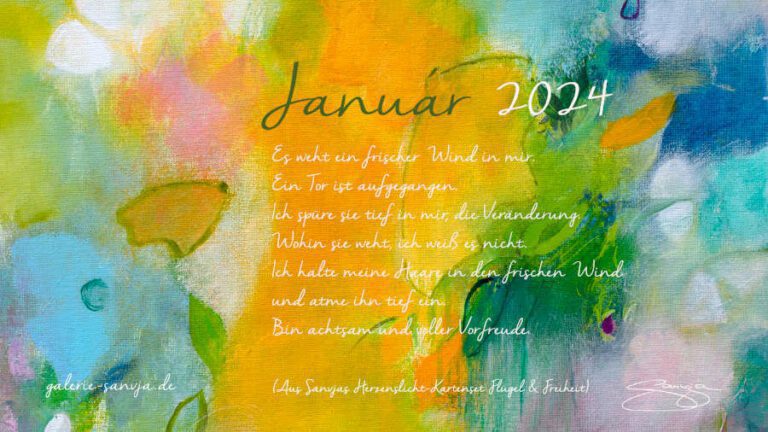 Januar 2024
Es weht ein frischer Wind in mir.
Ein Tor ist aufgegangen.
Ich spüre sie tief in mir, die Veränderung.
Wohin sie weht, ich weiß es nicht.
Ich halte meine Haare in den frischen Wind
und atme ihn tief ein.
Bin achtsam und voller Vorfreude.
galerie-sanvja.de
(Aus Sanvjas Herzenslicht-Kartenset Flügel & Freiheit)
Sanvja